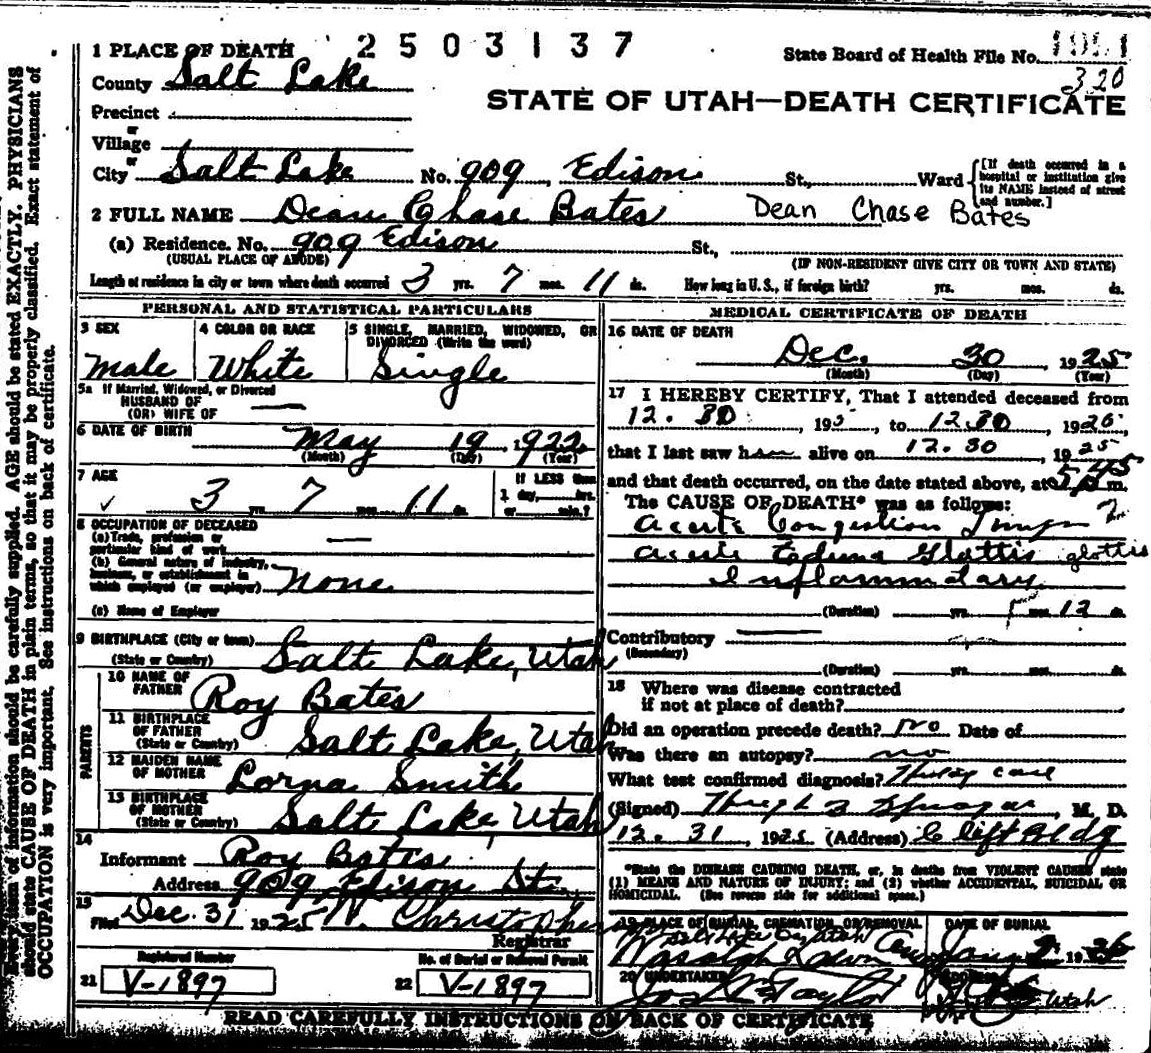 1 PLACE OF DEATH 2503137 State Board of Health File No.
320
County Salt Lake
STATE OF UTAH—DEATH CERTIFICATE
Precinct
or
Village
or
City Salt Lake No. 909 Edison St., Ward [If death occurred in a hospital or institution give its NAME instead of street and number.]
2 FULL NAME Dean Chase Bates Dean Chase Bates
(a) Residence. No. 909 Edison St.,
(USUAL PLACE OF ABODE) (IF NON-RESIDENT GIVE CITY OR TOWN AND STATE)
Length of residence in city or town where death occurred 3 yrs. 7 mos. 11 ds. How long in U. S., if foreign birth? yrs. mos. ds.
PERSONAL AND STATISTICAL PARTICULARS
3 SEX 4 COLOR OR RACE 5 SINGLE, MARRIED, WIDOWED, OR DIVORCED (Write the word)
Male White Single
5a If Married, Widowed, or Divorced
HUSBAND OF
(OR) WIFE OF
6 DATE OF BIRTH May 19 1922
(Month) (Day) (Year)
7 AGE If LESS than
3 yrs. 7 mos. 11 ds. 1 day, hrs.
or min.?
8 OCCUPATION OF DECEASED
(a) Trade, profession or
particular kind of work
(b) General nature of industry,
business, or establishment in
which employed (or employer) None
(c) Name of Employer
9 BIRTHPLACE (City or town)
(State or Country) Salt Lake, Utah
PARENTS
10 NAME OF
FATHER Roy Bates
11 BIRTHPLACE
OF FATHER
(State or Country) Salt Lake, Utah
12 MAIDEN NAME
OF MOTHER Lorna Smith
13 BIRTHPLACE
OF MOTHER
(State or Country) Salt Lake, Utah
14
Informant Roy Bates
Address 909 Edison St.
15
Filed Dec. 31 1925
Registrar
Registered Number No. of Burial or Removal Permit
21 V-1897 22 V-1897
MEDICAL CERTIFICATE OF DEATH
16 DATE OF DEATH
Dec. 30 1925
(Month) (Day) (Year)
17 I HEREBY CERTIFY, That I attended deceased from
12.30, 195, to 12.30, 1925,
that I last saw him alive on 12.30, 1925
and that death occurred, on the date stated above, at 545 p m.
The CAUSE OF DEATH* was as follows:
Acute Congestion Lungs
Acute Edema Glottis glottis
Inflammatory
(Duration) yrs. mos. 12 ds.
Contributory
(Secondary)
(Duration) yrs. mos. ds.
18 Where was disease contracted
if not at place of death?
Did an operation precede death? No Date of
Was there an autopsy? no
What test confirmed diagnosis?
(Signed) M. D.
12.31, 1925 (Address) Clift Bldg
*State the DISEASE CAUSING DEATH, or, in deaths from VIOLENT CAUSES state
(1) MEANS AND NATURE OF INJURY; and (2) whether ACCIDENTAL, SUICIDAL OR
HOMICIDAL. (See reverse side for additional space.)
19 PLACE OF BURIAL, CREMATION, OR REMOVAL DATE OF BURIAL
Wasatch Lawn Cem 1926
20 UNDERTAKER ADDRESS
Jos Taylor Utah
READ CAREFULLY INSTRUCTIONS ON BACK OF CERTIFICATE
Every item of information should be carefully supplied. AGE should be stated EXACTLY. PHYSICIANS
should state CAUSE OF DEATH in plain terms, so that it may be properly classified. Exact statement of
OCCUPATION is very important. See instructions on back of certificate.